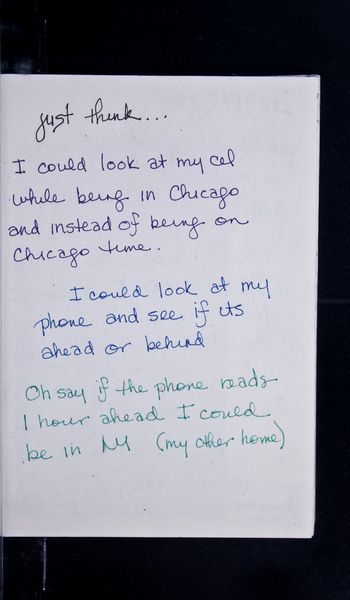 just think...
I could look at my cel
while being in Chicago
and instead of being on
Chicago time.
I could look at my
phone and see if its
ahead or behind
Oh say if the phone reads
1 hour ahead I could
be in NY (my other home)